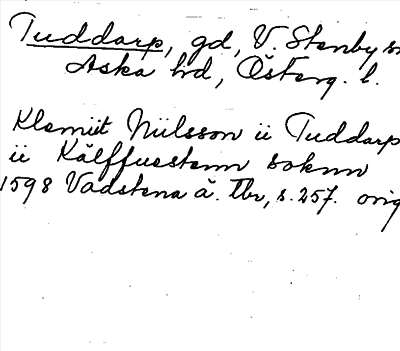 Tuddarp, gd, V. Stenby sn
Aska hd, Österg. l.
Klemüt Niilsson ii Tuddarp
ii Kälffuestenn soknn
1598 Vadstena ä. Tbr, s. 257. orig